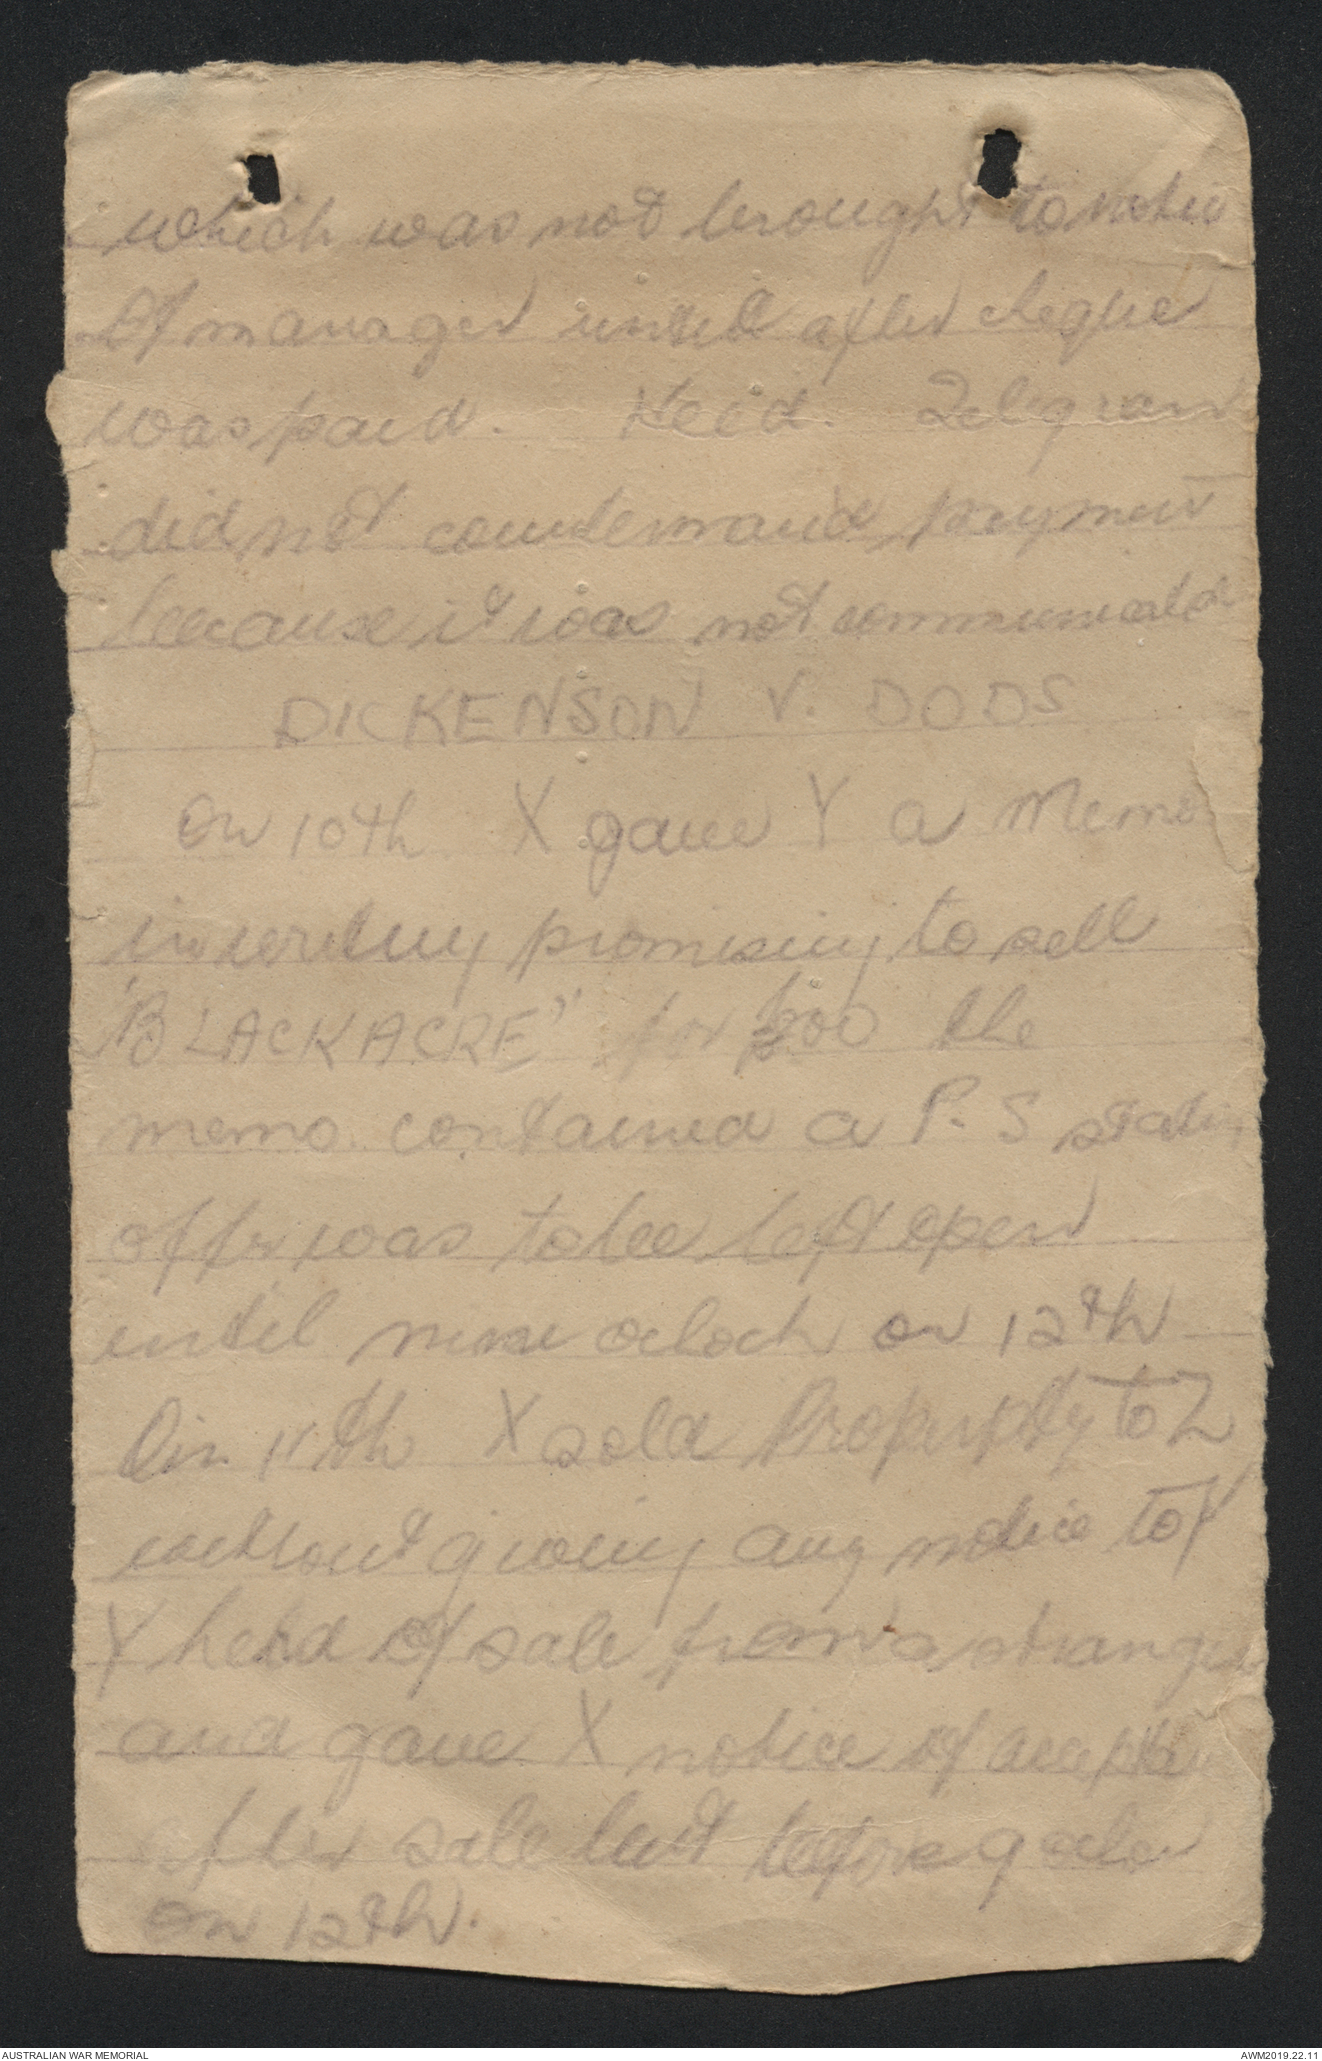 which was not brought to notice
of manager until after cheque
was paid. Held. Telegram
did not countermand payment
because it was not communicated
DICKENSON V. DODS
On 10th X gave Y a Memo
in writing promising to sell
"BLACKACRE" for £800 the
memo. contained a P.S stating
offer was to be left open
until nine oclock on 12th
On 11th X sold Property to Z
without giving any notice to Y
Y heard of sale from a stranger
and gave X notice of
after sale but before 9 oclock
on 12th.
AUSTRALIAN WAR MEMORIAL
AWM2019.22.11